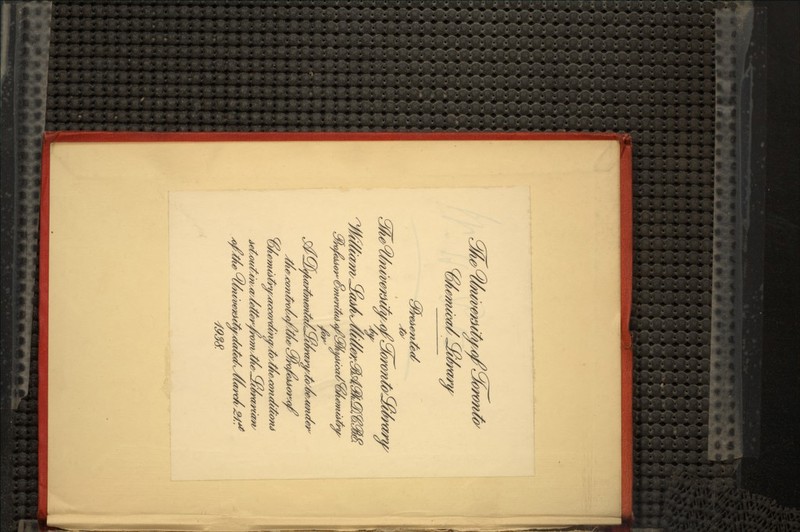 The University of Toronto
Chemical Library
Presented
to
The University of Toronto Library
by
William Lash Miller, B.A. Ph.D. C.B.E.
Professor Emeritus of Physical Chemistry
for
A Departmental Library to be under
the control of the Professor of
Chemistry according to the conditions
set out in a letter from the Librarian
of the University dated March 21st
1938.